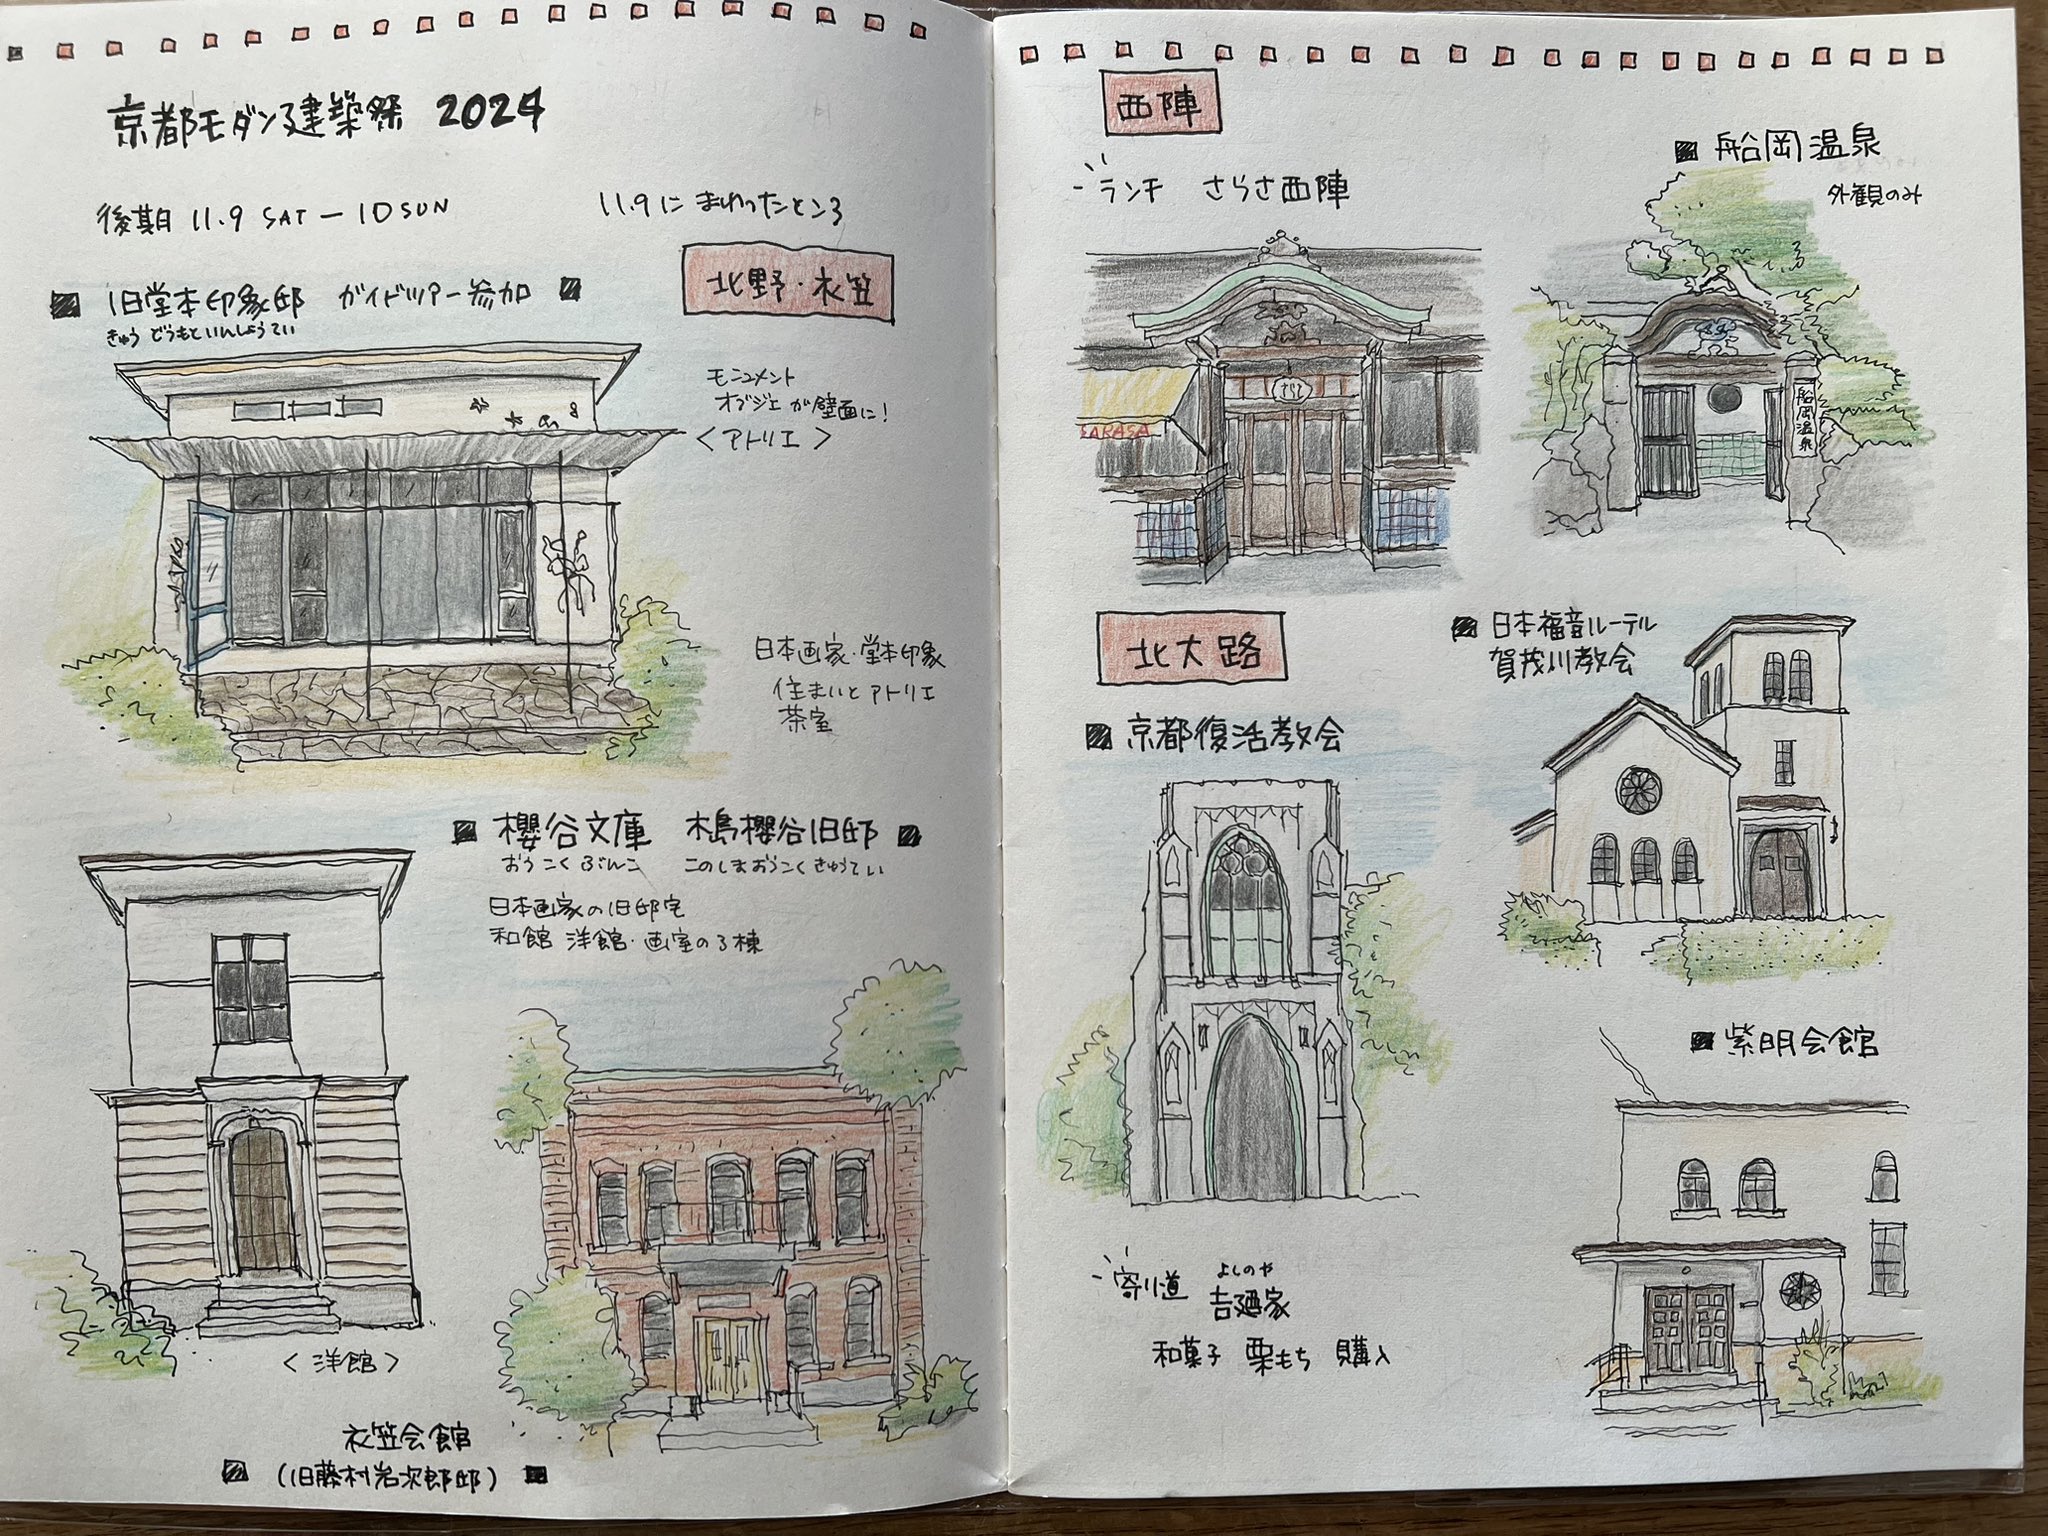 京都モダン建築祭 2024
後期 11.9 SAT － 10 SUN
11.9に まわったところ
北野・衣笠
旧堂本印象邸 ガイドツアー参加
きゅう どうもといんしょうてい
モニュメント
オブジェが壁面に！
＜アトリエ＞
日本画家・堂本印象
住まいとアトリエ
茶室
櫻谷文庫 木島櫻谷旧邸
おうこくぶんこ このしまおうこくきゅうてい
日本画家の旧邸宅
和館 洋館・画室の3棟
＜洋館＞
衣笠会館
(旧藤村岩次郎邸)
西陣
ランチ さらさ西陣
SARASA
船岡温泉
外観のみ
船岡温泉
北大路
京都復活教会
日本福音ルーテル
賀茂川教会
紫明会館
よしのや
寄り道 吉廼家
和菓子 栗もち 購入